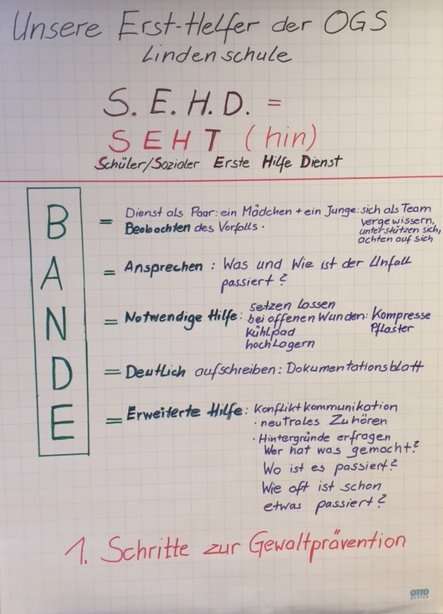 Unsere Erst-Helfer der OGS
Lindenschule
S. E. H. D. =
SEHT (hin)
Schüler/Sozialer Erste Hilfe Dienst
B = Dienst als Paar: ein Mädchen + ein Junge: sich als Team
Beobachten des Vorfalls. vergewissern,
unterstützen sich,
achten auf sich
A = Ansprechen : Was und Wie ist der Unfall
passiert?
N = Notwendige Hilfe: setzen lassen
bei offenen Wunden: Kompresse
Kühlpad Pflaster
hochlagern
D = Deutlich aufschreiben: Dokumentationsblatt
E = Erweiterte Hilfe: Konfliktkommunikation
· neutrales Zuhören
· Hintergründe erfragen
Wer hat was gemacht?
Wo ist es passiert?
Wie oft ist schon
etwas passiert?
1. Schritte zur Gewaltprävention
OTTO
OFFICE